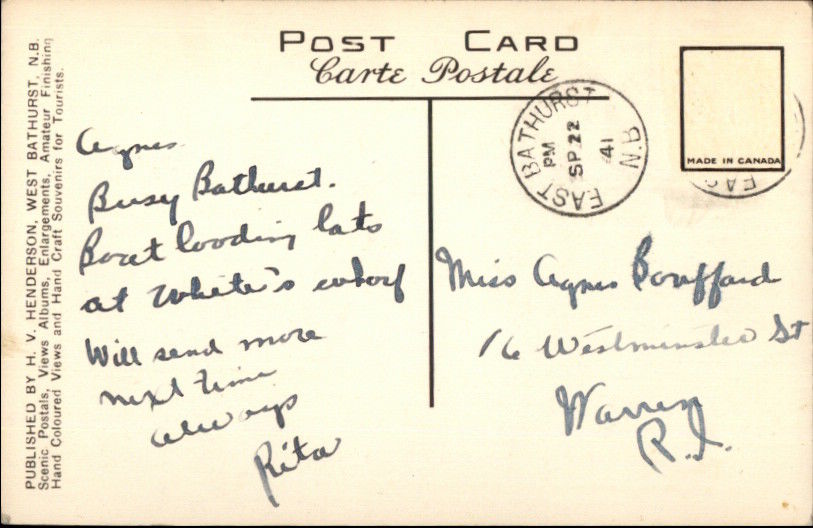 POST CARD
Carte Postale
PUBLISHED BY H. V. HENDERSON, WEST BATHURST, N.B.
Scenic Postals, Views Albums, Enlargements, Amateur Finishing
Hand Coloured Views and Hand Craft Souvenirs for Tourists.
EAST BATHURST N.B
PM
SP 22
41
MADE IN CANADA
EAS
Agnes
Busy Bathurst.
Boat loading lats
at White's wharf
Will send more
next time
always
Rita
Miss Agnes Bouffard
16 Westminster St
Warren
R.I.